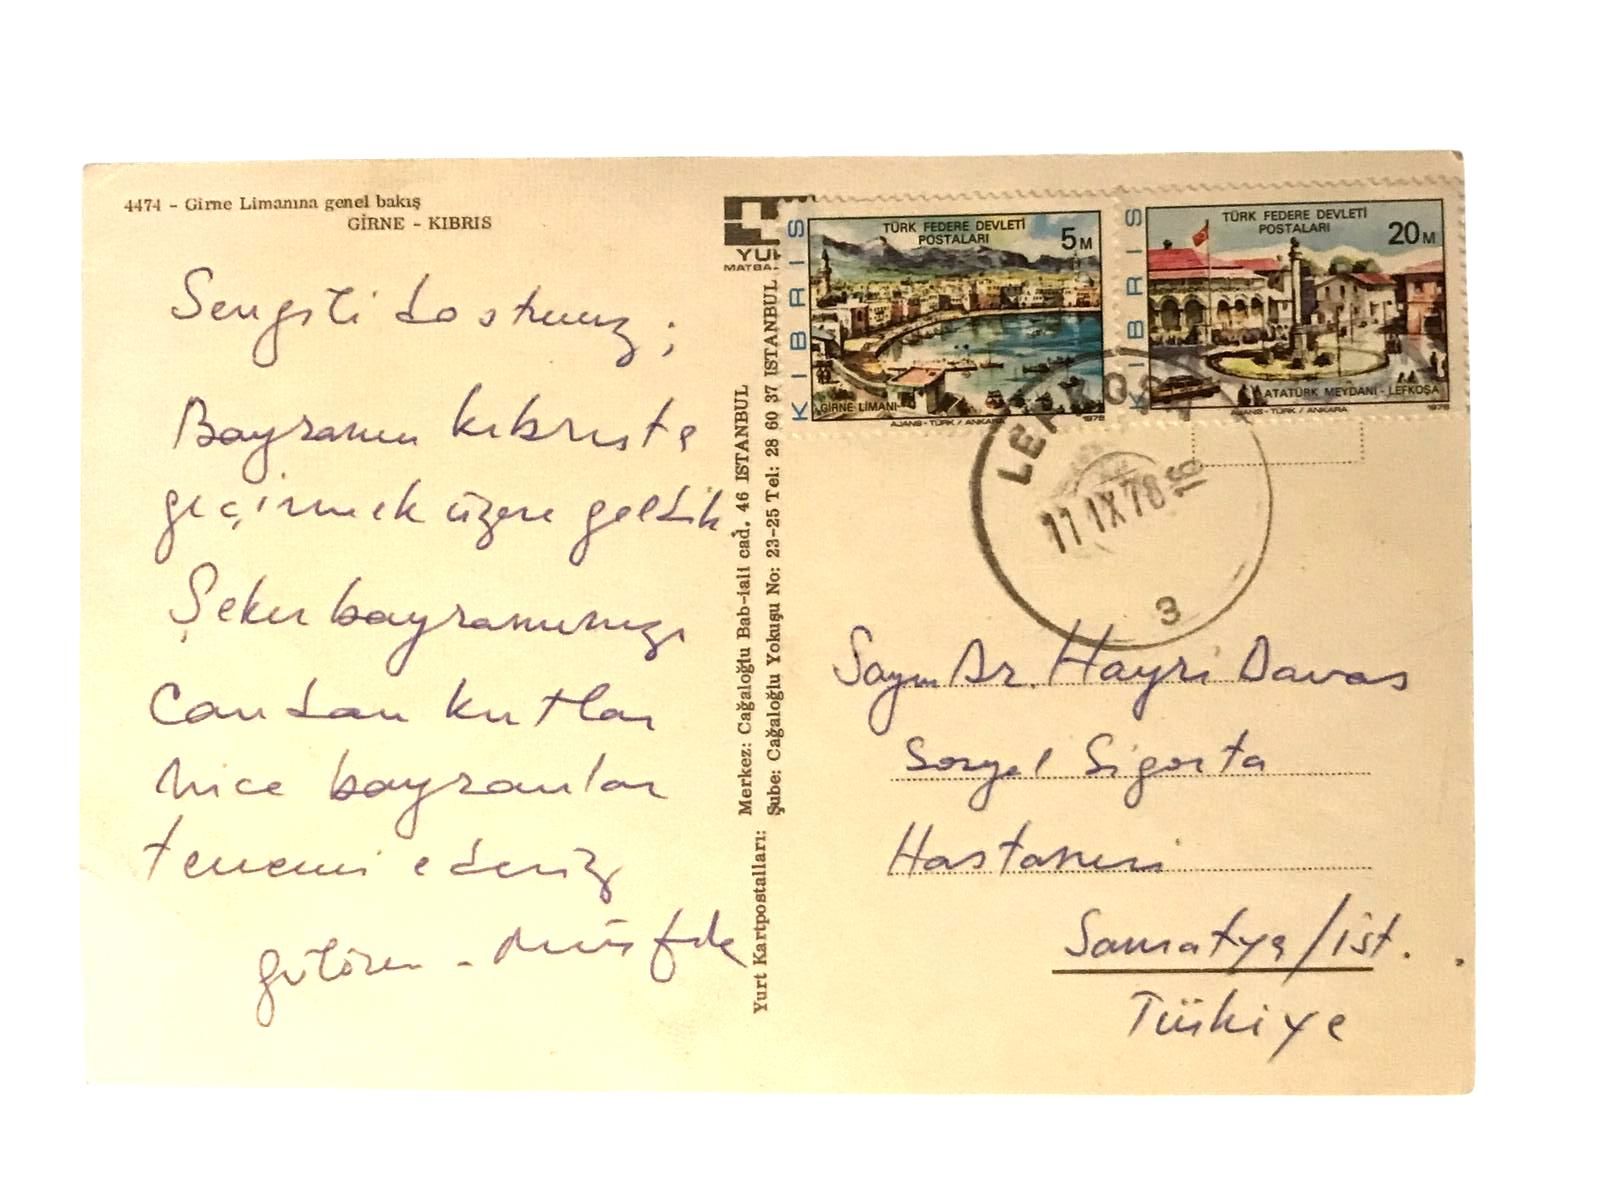 4474 - Girne Limanına genel bakış
GİRNE - KIBRIS
Sevgili dostumuz;
Bayramı kıbrısta
geçirmek üzere geldik
Şeker bayramınızı
Candan kutlar
nice bayramlar
temenni ederiz
gülören - Müşfik
YURT
MATBA
Yurt Kartpostalları:
Merkez: Cağaloğlu Bab-iali cad. 46 ISTANBUL
Şube: Cağaloğlu Yokuşu No: 23-25 Tel: 28 60 37 ISTANBUL
KIBRIS
TÜRK FEDERE DEVLETİ
POSTALARI
5 M
GİRNE LİMANI
AJANS - TÜRK / ANKARA
1978
KIBRIS
TÜRK FEDERE DEVLETİ
POSTALARI
20 M
ATATÜRK MEYDANI - LEFKOŞA
AJANS - TÜRK / ANKARA
1978
LEFKOŞA
11 IX 78 16
3
Sayın Dr. Hayri Davas
Sosyal Sigorta
Hastanesi
Samatya/ist.
Türkiye